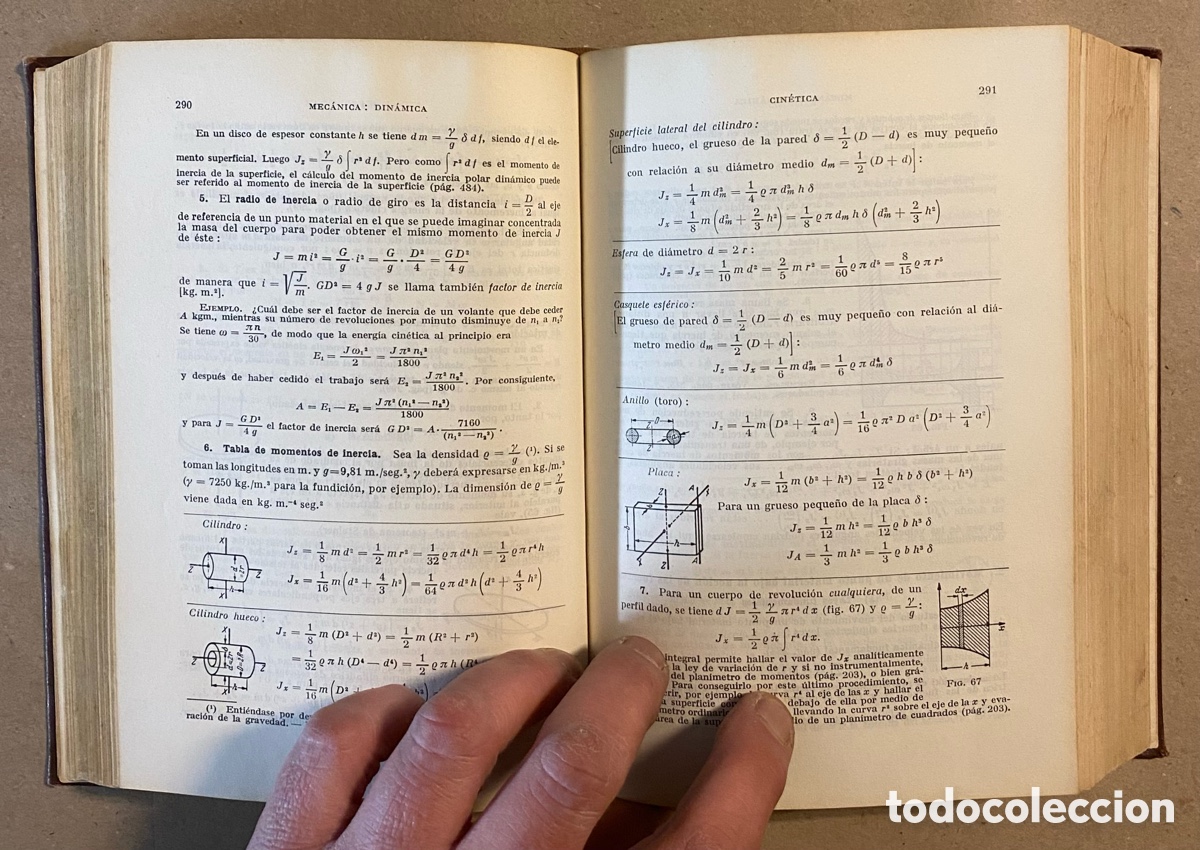 290
MECÁNICA: DINÁMICA
En un disco de espesor constante h se tiene d m = γ/g δ d f, siendo d f el ele-
mento superficial. Luego J_z = γ/g δ ∫ r² d f. Pero como ∫ r² d f es el momento de
inercia de la superficie, el cálculo del momento de inercia polar dinámico puede
ser referido al momento de inercia de la superficie (pág. 484).
5. El radio de inercia o radio de giro es la distancia i = D/2 al eje
de referencia de un punto material en el que se puede imaginar concentrada
la masa del cuerpo para poder obtener el mismo momento de inercia J
de éste:
J = m i² = G/g · i² = G/g · D²/4 = G D²/4 g
de manera que i = √(J/m). GD² = 4 g J se llama también factor de inercia
[kg. m.²].
EJEMPLO. ¿Cuál debe ser el factor de inercia de un volante que debe ceder
A kgm., mientras su número de revoluciones por minuto disminuye de n₁ a n₂?
Se tiene ω = π n/30, de modo que la energía cinética al principio era
E₁ = J ω₁²/2 = J π² n₁²/1800
y después de haber cedido el trabajo será E₂ = J π² n₂²/1800. Por consiguiente,
A = E₁ — E₂ = J π² (n₁² — n₂²)/1800
y para J = G D²/4 g el factor de inercia será G D² = A · 7160/(n₁² — n₂²).
6. Tabla de momentos de inercia. Sea la densidad ϱ = γ/g (¹). Si se
toman las longitudes en m. y g=9,81 m./seg.², γ deberá expresarse en kg./m.³
(γ = 7250 kg./m.³ para la fundición, por ejemplo). La dimensión de ϱ = γ/g
viene dada en kg. m.⁻⁴ seg.²
Cilindro:
J_z = 1/8 m d² = 1/2 m r² = 1/32 ϱ π d⁴ h = 1/2 ϱ π r⁴ h
J_x = 1/16 m (d² + 4/3 h²) = 1/64 ϱ π d² h (d² + 4/3 h²)
X
Z
Z
h
X
Cilindro hueco:
J_z = 1/8 m (D² + d²) = 1/2 m (R² + r²)
= 1/32 ϱ π h (D⁴ — d⁴) = 1/2 ϱ π h (R⁴
J_x = 1/16 m (D²
X
Z
Z
h
X
(¹) Entiéndase por
ración de la gravedad. —
CINÉTICA
291
Superficie lateral del cilindro:
[Cilindro hueco, el grueso de la pared δ = 1/2 (D — d) es muy pequeño
con relación a su diámetro medio d_m = 1/2 (D + d)]:
J_z = 1/4 m d_m² = 1/4 ϱ π d_m³ h δ
J_x = 1/8 m (d_m² + 2/3 h²) = 1/8 ϱ π d_m h δ (d_m² + 2/3 h²)
Esfera de diámetro d = 2 r:
J_z = J_x = 1/10 m d² = 2/5 m r² = 1/60 ϱ π d⁵ = 8/15 ϱ π r⁵
Casquete esférico:
[El grueso de pared δ = 1/2 (D — d) es muy pequeño con relación al diá-
metro medio d_m = 1/2 (D + d)]:
J_z = J_x = 1/6 m d_m² = 1/6 ϱ π d_m⁴ δ
Anillo (toro):
D
Z
Z
J_z = 1/4 m (D² + 3/4 a²) = 1/16 ϱ π² D a² (D² + 3/4 a²)
Placa:
J_x = 1/12 m (b² + h²) = 1/12 ϱ h b δ (b² + h²)
Para un grueso pequeño de la placa δ:
J_z = 1/12 m h² = 1/12 ϱ b h³ δ
J_A = 1/3 m h² = 1/3 ϱ b h³ δ
Z
A
h
Z
A
7. Para un cuerpo de revolución cualquiera, de un
perfil dado, se tiene d J = 1/2 γ/g π r⁴ d x (fig. 67) y ϱ = γ/g:
J_x = 1/2 ϱ π ∫ r⁴ d x.
dx
x
h
FIG. 67
integral permite hallar el valor de J_x analíticamente
la ley de variación de r y si no instrumentalmente,
del planímetro de momentos (pág. 203), o bien grá-
Para conseguirlo por este último procedimiento, se
por ejemplo, curva r⁴ al eje de las x y hallar el
superficie debajo de ella por medio de
llevando la curva r² sobre el eje de la x y eva-
área de la de un planímetro de cuadrados (pág. 203).
todocoleccion